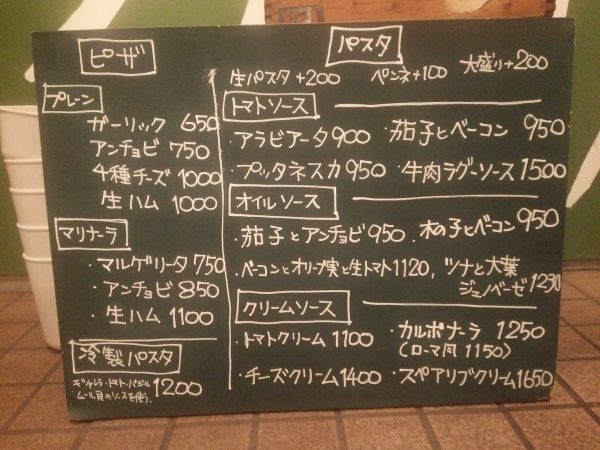 ピザ
プレーン
ガーリック 650
アンチョビ 750
4種チーズ 1000
生ハム 1000
マリナーラ
・マルゲリータ 750
・アンチョビ 850
・生ハム 1100
冷製パスタ
1200
パスタ
生パスタ +200 ペンネ+100 大盛り+200
トマトソース
・アラビアータ 900 ・茄子とベーコン 950
・プッタネスカ 950 ・牛肉ラグーソース 1500
オイルソース
・茄子とアンチョビ 950 ・木の子とベーコン 950
・ベーコンとオリーブ実と生トマト 1120, ツナと大葉
ジェノベーゼ 1230
クリームソース
・トマトクリーム 1100 ・カルボナーラ 1250
(ローマ風 1150)
・チーズクリーム 1400 ・スペアリブクリーム 1650